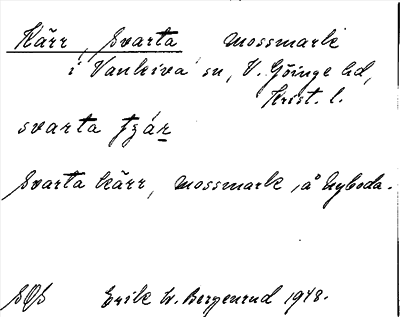 Kärr, Svarta mossmark
i Vankiva sn, V. Göinge hd,
Krist. l.
svarta
Svarta kärr, mossmark å Nyboda.
SOS Erik W. Bergenrud 1948.